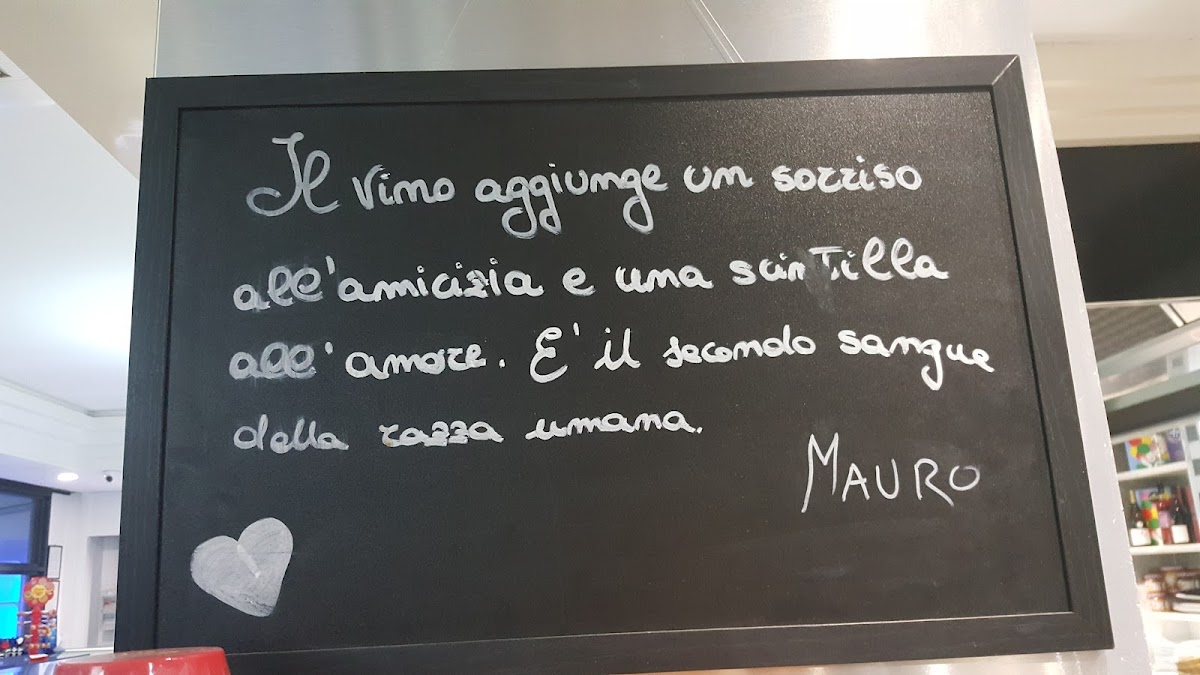 Il vino aggiunge un sorriso
all'amicizia e una scintilla
all'amore. E' il secondo sangue
della razza umana.
MAURO